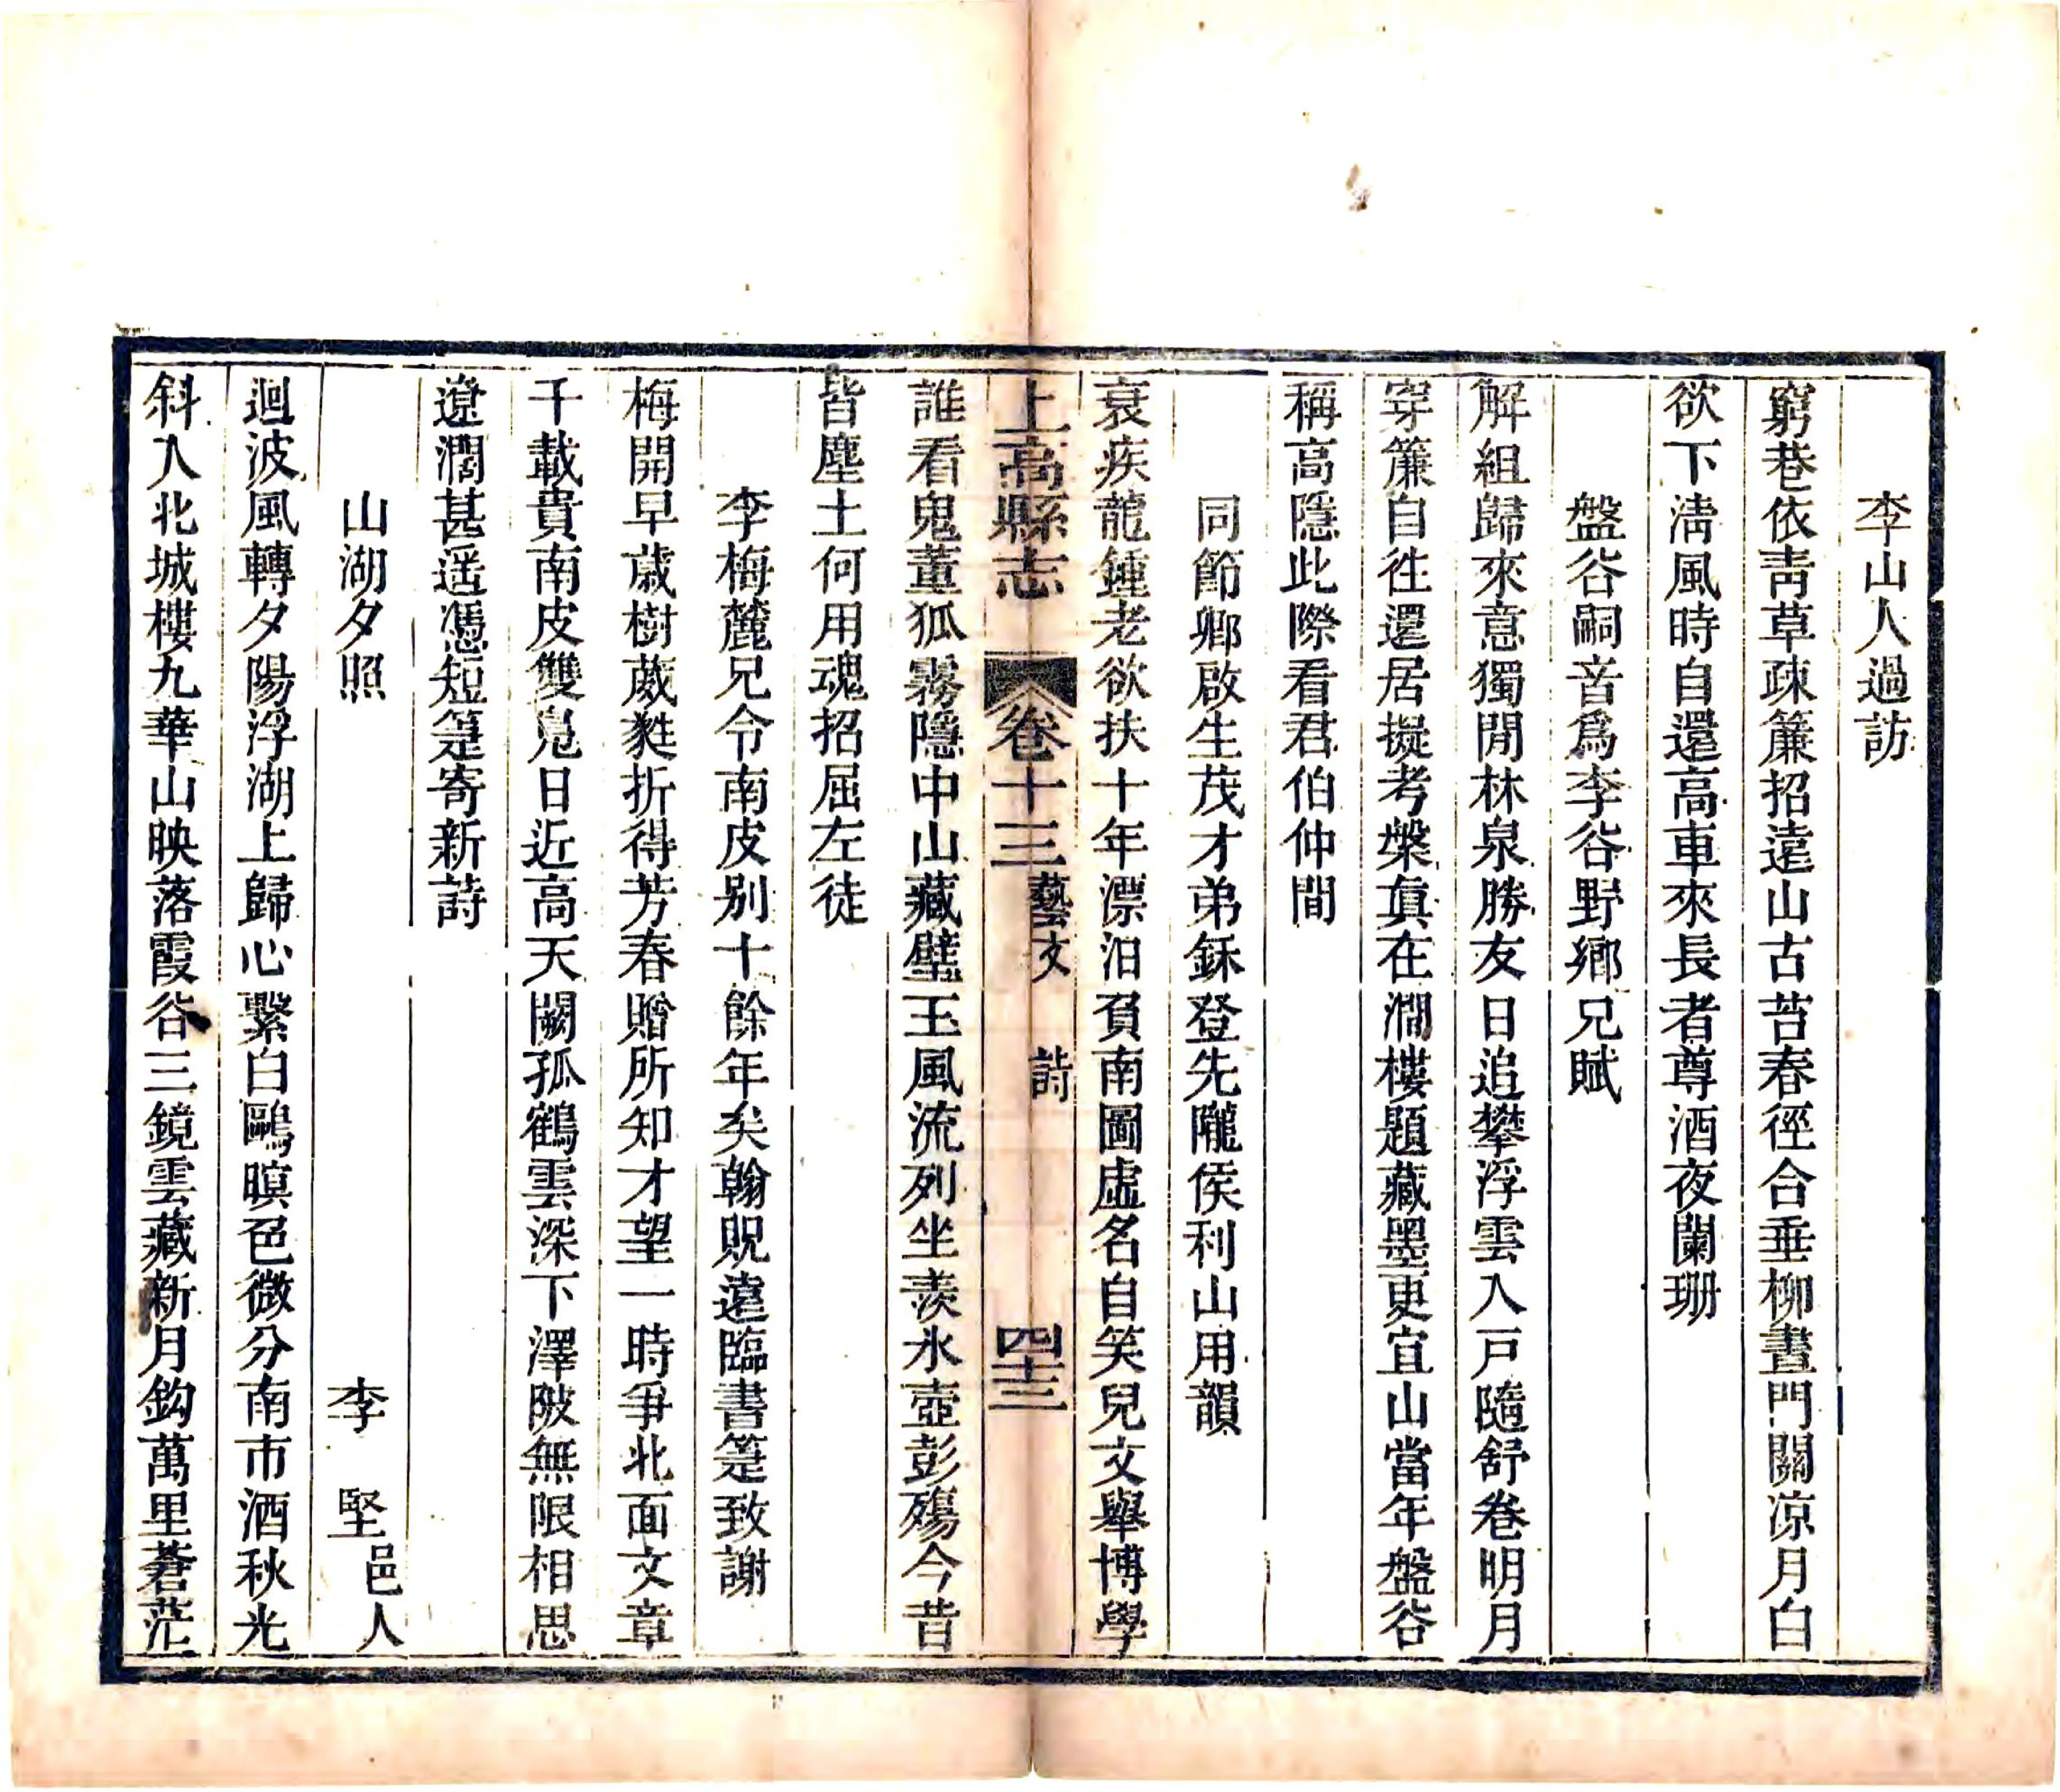 李山人過訪
窮巷依靑草疎簾招遠山古苔春徑合垂柳晝門關凉月白
欲下淸風時自還高車來長者尊酒夜闌珊
盤谷嗣音爲李谷野鄉兄賦
解組歸來意獨閒林泉勝友日追攀浮雲入戸隨舒卷明月
穿簾自往還居擬考槃眞在澗樓題藏墨更宜山當年盤谷
稱高隱此際看君伯仲間
同節鄉啟生茂才弟鉌登先隴侯利山用韻
衰疾龍鍾老欲扶十年漂泊負南圖虛名自笑兒文舉博學
上高縣志 卷十三 藝文 詩 四十三
誰看鬼董狐霧隱中山藏璧玉風流列坐羨氷壺彭殤今昔
皆塵土何用魂招屈左徒
李梅麓兄令南皮别十餘年矣翰貺遠臨書箑致謝
梅開早歳樹葳蕤折得芳春贈所知才望一時爭北面文章
千載貴南皮雙鳧日近高天闕孤鶴雲深下澤陂無限相思
遼濶甚遥憑短箑寄新詩
山湖夕照 李堅邑人
迴波風轉夕陽浮湖上歸心繫白鷗暝色微分南市酒秋光
斜入北城樓九華山映落霞谷三鏡雲藏新月鈎萬里蒼茫